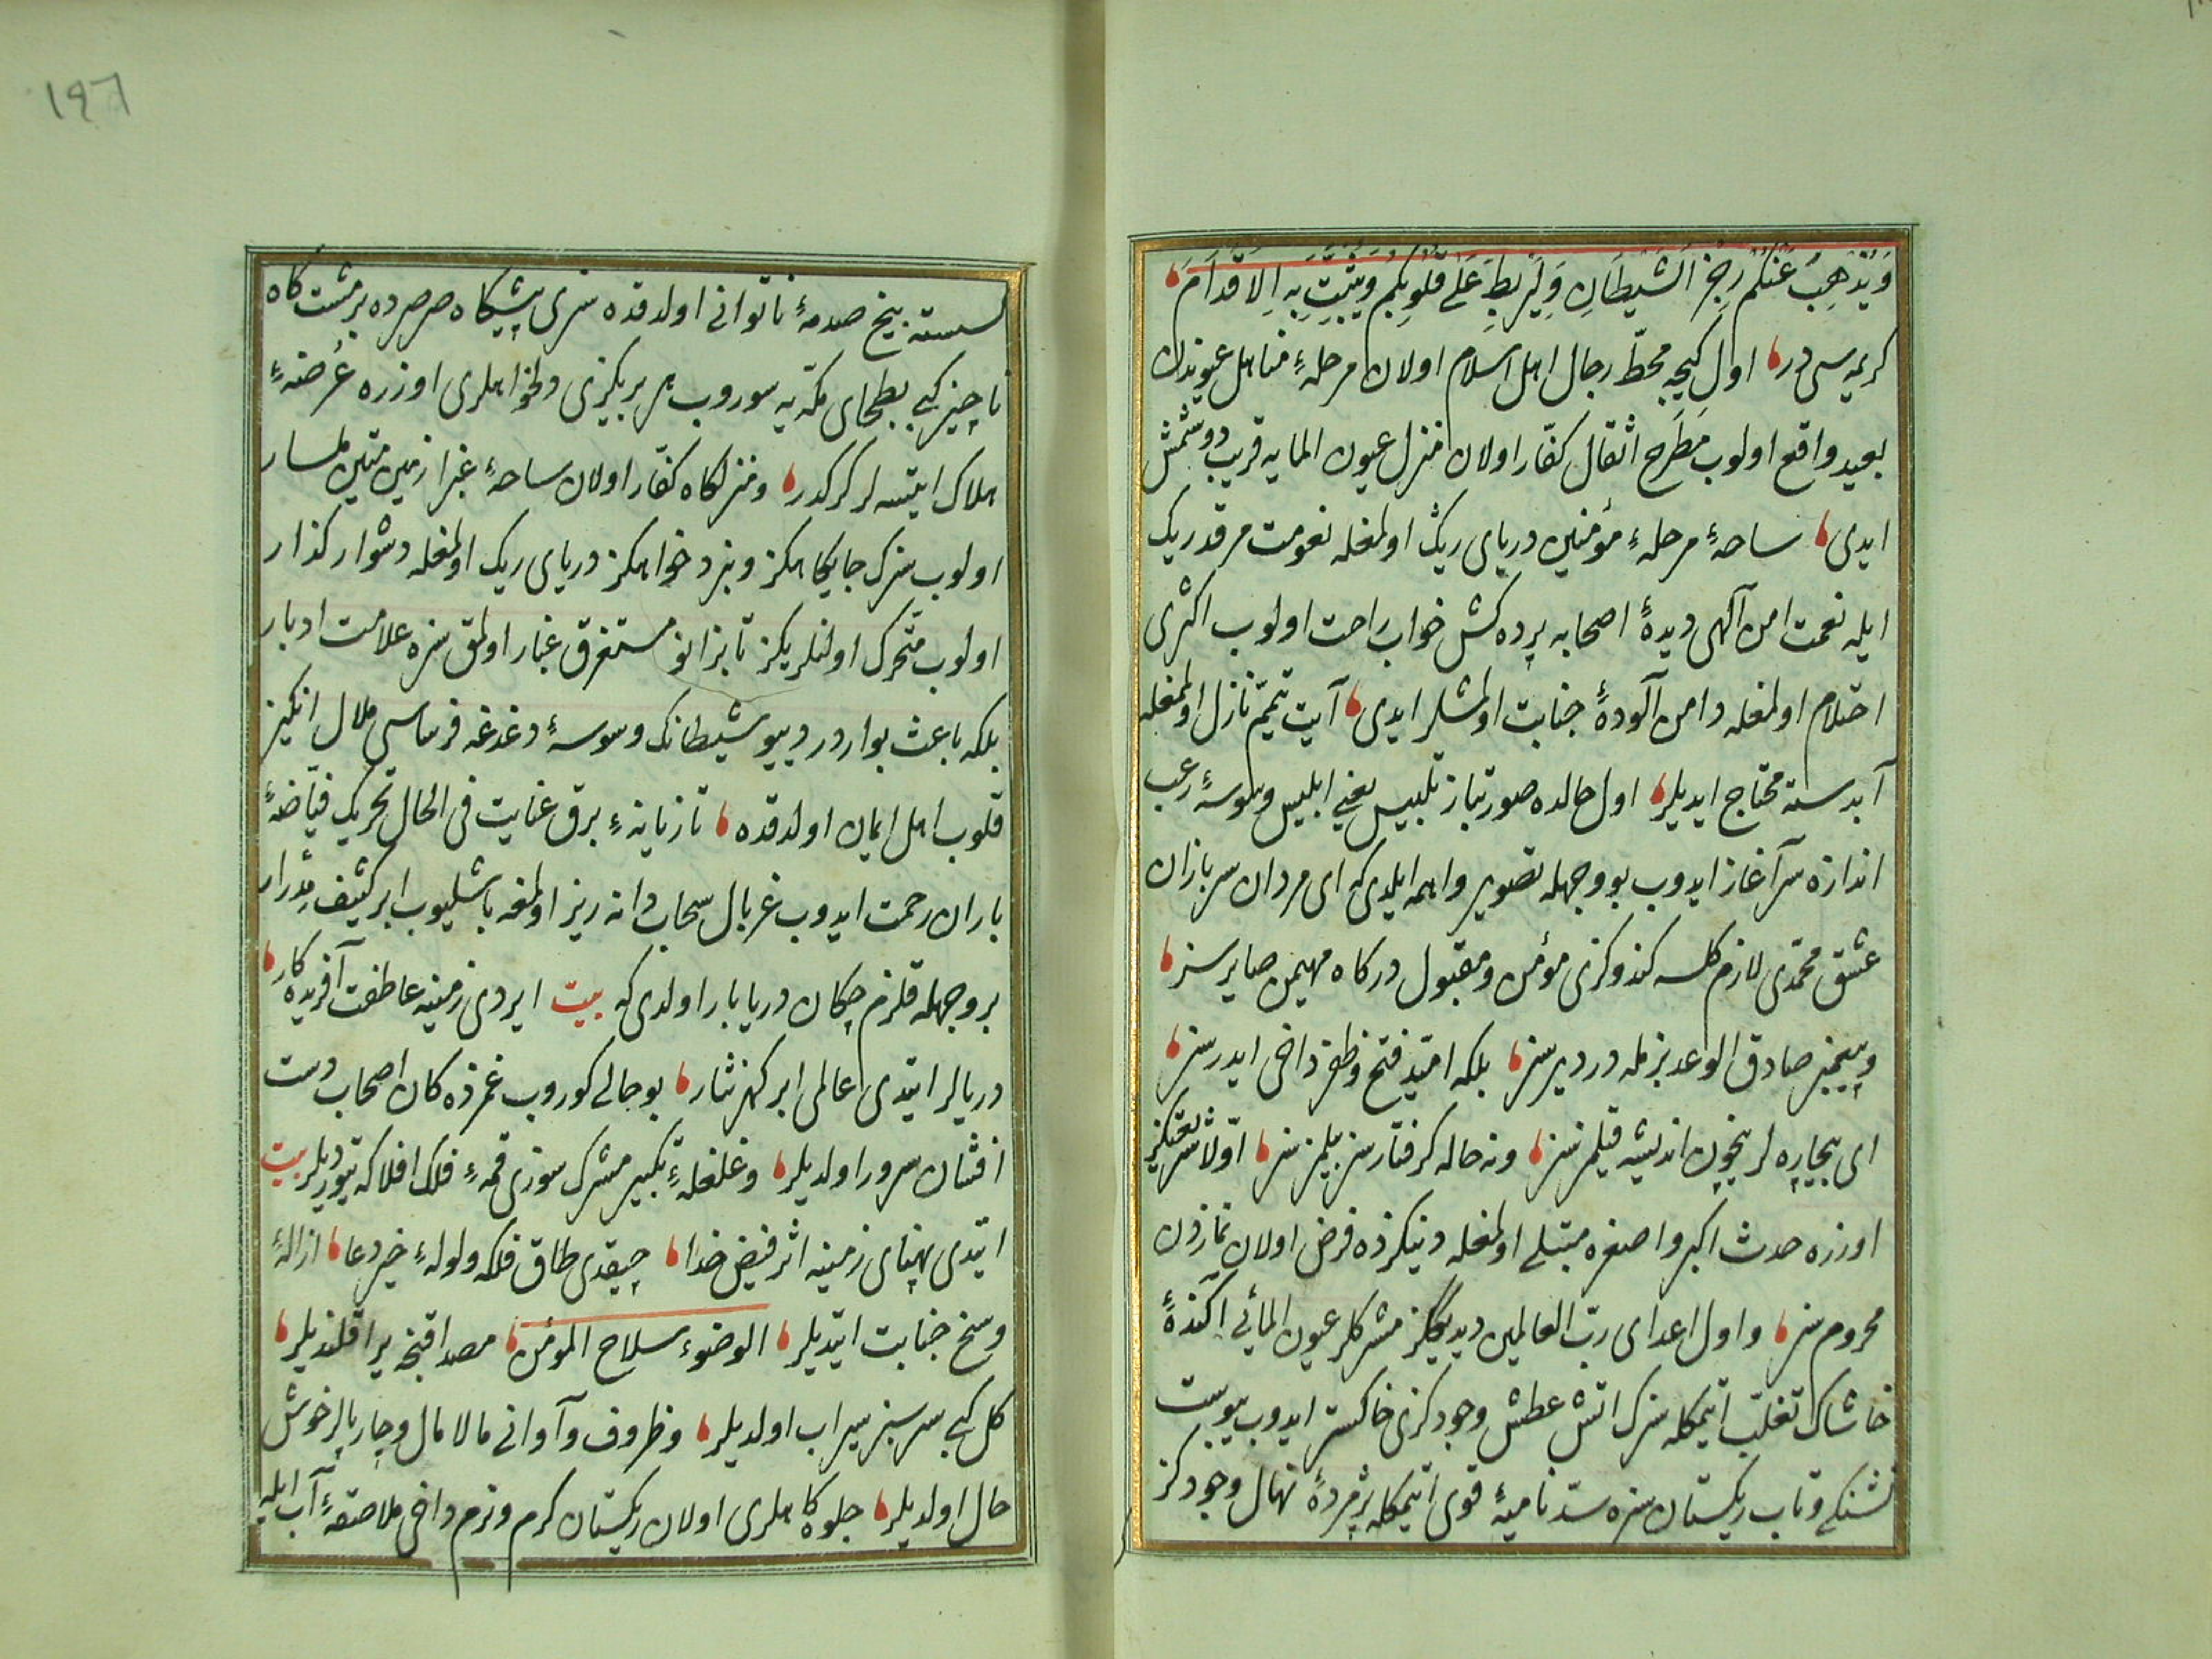 وَيُذْهِبَ عَنْكُمْ رِجْزَ الشَّيْطَانِ وَلِيَرْبِطَ عَلَى قُلُوبِكُمْ وَيُثَبِّتَ بِهِ الْاَقْدَامَ
كريمه سى در اول كيجه محطّ رجال اهل اسلام اولان مرحلهٔ مناهل عيوندن
بعيد واقع اولوب مَطرَح اثقال كفّار اولان منزل عيون المايه قريب دوشمش
ايدى ساحهٔ مرحلهٔ مؤمنين درياى ريك اولمغله نعومت مرقد ريك
ايله نعمت امن آلهى ديدهٔ اصحابه پرده كش خواب راحت اولوب اكثرى
احتلام اولمغله دامن آلودهٔ جنابت اولمشلر ايدى آيت تيمّم نازل اولمغله
آبدسته محتاج ايديلر اول حالده صورتباز تلبيس يعنى ابليس وسوسهٔ رعب
اندازه سرآغاز ايدوب بو وجهله تصوير واهمه ايلدى كه اى مردان سربازان
عشق محمّدى لازم كلسه كندوكزى مؤمن ومقبول دركاه مهيمن صايرسز
وپيغمبر صادق الوعد بزمله در ديرسز بلكه اميّد فتح وظفر داخى ايدرسز
اى بيچاره لر نيچون انديشه قيلمزسز ونه حاله كرفتارسز بيلمزسز اوّلا
اوزره حدث اكبر واصغره مبتلى اولمغله دينكزده فرض اولان نمازدن
محروم سز واول اعداى ربّ العالمين ديديككز مشركلر عيون المائى آكندهٔ
خاشاك تغلّب ايتمكله سزك آتش عطش وجودكزى خاكستر ايدوب يبوست
تشنكى وتاب ريكستان سزه سدّ ناميهٔ قوى ايتمكله پژمردهٔ نهال وجودكز
كسسته بيخ صدمهٔ ناتوانى اولدقده سزى پيشكاه صرصرده بر مشت كاه
ناچيز كبى بطحاى مكّه يه سوروب هر بريكزى دلخواهلرى اوزره عُرضهٔ
هلاك ايتسه لر كركدر ومنزلكاه كفّار اولان ساحهٔ غبرا زمين متين ملسار
اولوب سزك جايكاهكز ونبرد خواهكز درياى ريك اولمغله دشوار كذار
اولوب متحرّك اولنلريكز تا بزانو مستغرق غبار اولمق سزه علامت ادبار
بلكه باعث بواردر ديو شيطانك وسوسهٔ دغدغه فرماسى ملال انكيز
قلوب اهل ايمان اولدقده تازيانهٔ برق عنايت فى الحال تحريك فيّاضهٔ
باران رحمت ايدوب غربال سحاب دانه ريز اولمغه باشليوب ابر كثيف مِدرار
بر وجهله قلزم چكان دريا بار اولدى كه بيت ايردى زمينه عاطفت آفريده كار
دريالر ايتدى عالمى ابر كهر نثار بو حالى كوروب غمزده كان اصحاب دست
افشان سرور اولديلر وغلغلهٔ تكبير مشرك سوزى قمهٔ فلك افلاكه يتورديلر بيت
ايتدى پهناى زمينه اثر فيض خدا چيقدى طاق فلكه ولولهٔ خير دعا ازالهٔ
وسخ جنابت ايتديلر الوضوء سلاح المؤمن مصداقنجه يراقلنديلر
كل كبى سرسبز سيراب اولديلر وظروف وآوانى مالامال وچارپالر خوش
حال اولديلر جلوه كاهلرى اولان ريكستان كرم ونرم داخى ملاصقهٔ آب ايله
١٩٦